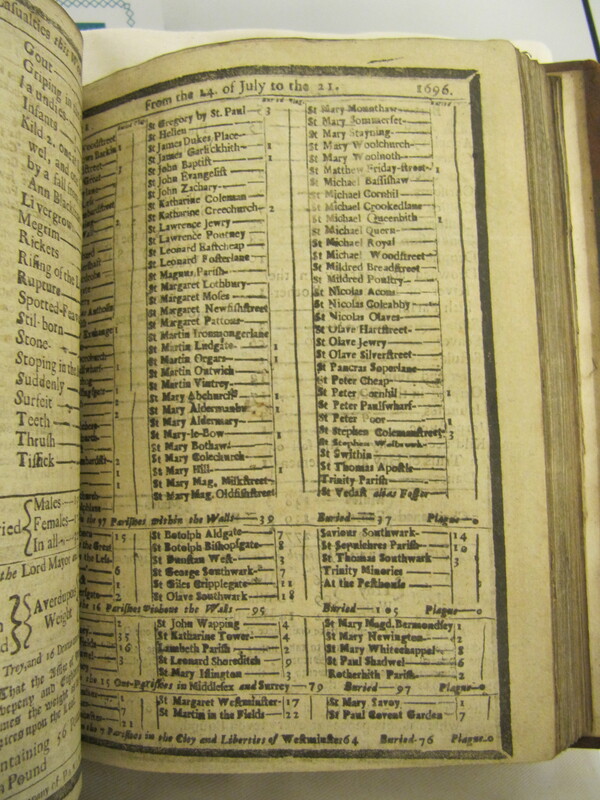 Casualties this W
Gour
Griping in the
Jaundies
Infants
Kild 2. one
wel, and
by a fall
Ann Black
Livergrow
Megrim
Rickets
Rising of the L
Rupture
Spotted-Feav
Stil-born
Stone
Stoping in the
Suddenly
Surfeit
Teeth
Thrush
Tissick
Males
Females
In all
the Lord Mayor
Averdupois
Weight
Troy, and 16 Drams
That the Assize of
the weight
taining 56
a Pound
From the 14. of July to the 21. 1696.
St Gregory by St. Paul 3
St Hellen
St James Dukes Place
St James Garlickhith 1
St John Baptist 1
St John Evangelist
St John Zachary
St Katharine Coleman
St Katharine Creechurch 2
St Lawrence Jewry
St Lawrence Pountney
St Leonard Eastcheap
St Leonard Fosterlane
St Magnus Parish
St Margaret Lothbury
St Margaret Moses
St Margaret Newfishstreet
St Margaret Pattons
St Martin Ironmongerlane
St Martin Ludgate 1
St Martin Orgars 1
St Martin Outwich
St Martin Vintrey
St Mary Abchurch 1
St Mary Aldermanby 1
St Mary Aldermary
St Mary-le-Bow 1
St Mary Bothaw
St Mary Colechurch
St Mary Hill 1
St Mary Mag. Milkstreet
St Mary Mag. Oldfishstreet
St Mary Mounthaw
St Mary Sommerset
St Mary Stayning
St Mary Woolchurch
St Mary Woolnoth
St Matthew Friday-street 1
St Michael Bassishaw
St Michael Cornhil
St Michael Crookedlane
St Michael Queenhith 1
St Michael Quern
St Michael Royal
St Michael Woodstreet
St Mildred Breadstreet
St Mildred Poultry
St Nicolas Acons
St Nicolas Coleabby
St Nicolas Olaves
St Olave Hartstreet
St Olave Jewry
St Olave Silverstreet
St Pancras Soperlane
St Peter Cheap
St Peter Cornhil 1
St Peter Paulswharf
St Peter Poor 1
St Stephen Colemanstreet 3
St Stephen Walbrook
St Swithin
St Thomas Apostle
Trinity Parish
St Vedast alias Foster
the 97 Parishes within the Walls 39 Buried 37 Plague 0
St Botolph Aldgate 7
St Botolph Bishopsgate 8
St Dunstan West 3
St George Southwark 7
St Giles Cripplegate 11
St Olave Southwark 18
Saviour Southwark 14
St Sepulchres Parish 10
St Thomas Southwark 3
Trinity Minories
At the Pesthouse
the 16 Parishes without the Walls 95 Buried 105 Plague 0
St John Wapping 4
St Katharine Tower 4
Lambeth Parish 2
St Leonard Shoreditch 9
St Mary Islington 3
St Mary Magd. Bermondsey 1
St Mary Newington 2
St Mary Whitechappel 8
St Paul Shadwel 6
Rotherhith Parish 2
the 15 Out-Parishes in Middlesex and Surrey 79 Buried 97 Plague 0
St Margaret Westminster 17
St Martin in the Fields 22
St Mary Savoy 1
St Paul Covent Garden 7
the 7 Parishes in the City and Liberties of Westminster 64 Buried 76 Plague 0